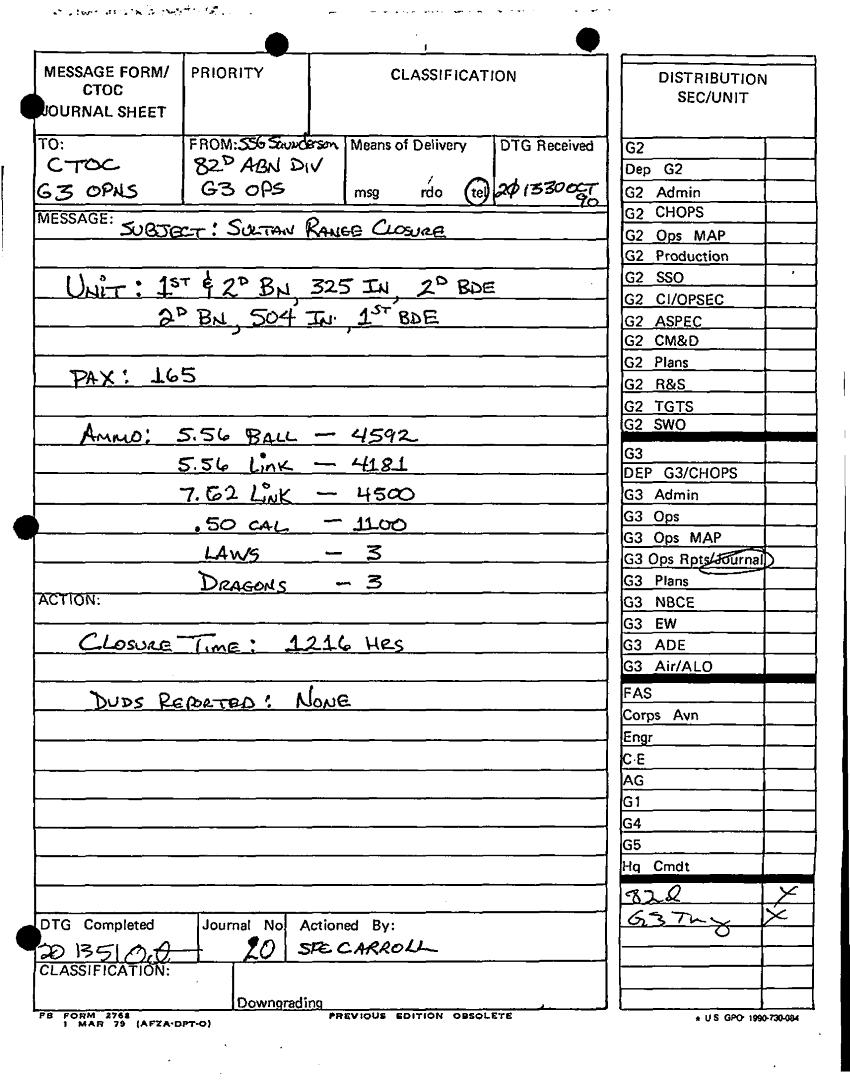 MESSAGE FORM/
CTOC
JOURNAL SHEET
PRIORITY
CLASSIFICATION
TO:
CTOC
G3 OPNS
FROM: SSG Saunderson
82D ABN DIV
G3 OPS
Means of Delivery
msg rdo tel
DTG Received
201330 OCT
90
MESSAGE:
SUBJECT: SULTAN RANGE CLOSURE
UNIT: 1ST & 2D BN, 325 IN, 2D BDE
2D BN, 504 IN, 1ST BDE
PAX: 165
AMMO: 5.56 BALL — 4592
5.56 LINK — 4181
7.62 LINK — 4500
.50 CAL — 1100
LAWS — 3
DRAGONS — 3
ACTION:
CLOSURE TIME: 1216 HRS
DUDS REPORTED: NONE
DTG Completed
201351
Journal No
20
Actioned By:
SPC CARROLL
CLASSIFICATION:
Downgrading
FB FORM 2768
1 MAR 79 (AFZA-DPT-O)
PREVIOUS EDITION OBSOLETE
DISTRIBUTION
SEC/UNIT
G2
Dep G2
G2 Admin
G2 CHOPS
G2 Ops MAP
G2 Production
G2 SSO
G2 CI/OPSEC
G2 ASPEC
G2 CM&D
G2 Plans
G2 R&S
G2 TGTS
G2 SWO
G3
DEP G3/CHOPS
G3 Admin
G3 Ops
G3 Ops MAP
G3 Ops Rpts/Journal
G3 Plans
G3 NBCE
G3 EW
G3 ADE
G3 Air/ALO
FAS
Corps Avn
Engr
C-E
AG
G1
G4
G5
Hq Cmdt
82d X
G3 Tng X
* US GPO 1990-730-084